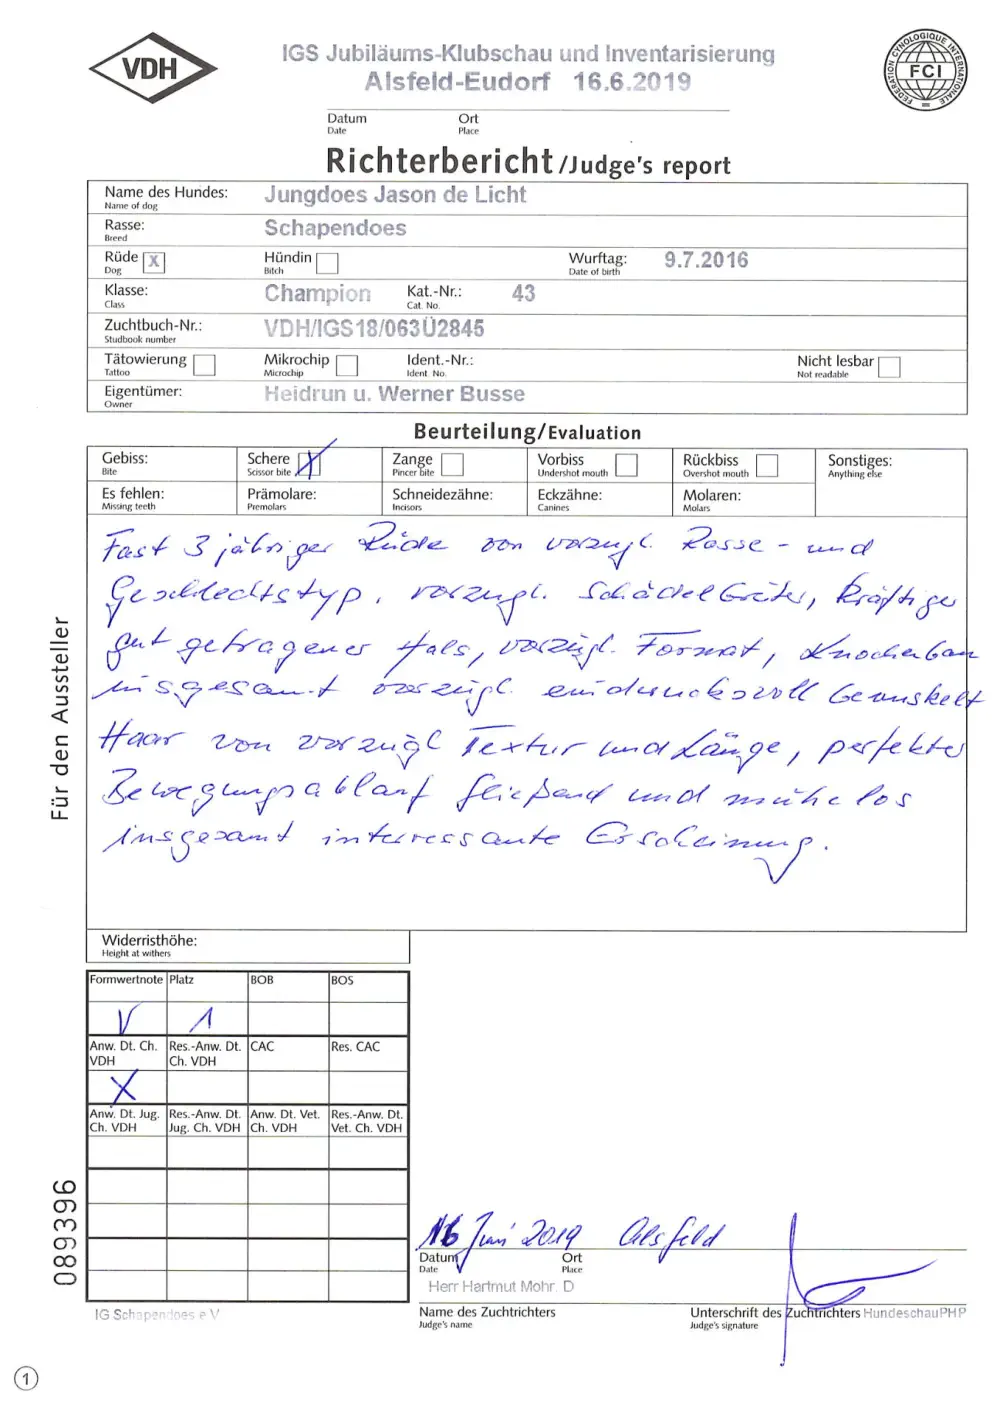 VDH
IGS Jubiläums-Klubschau und Inventarisierung
Alsfeld-Eudorf 16.6.2019
FEDERATION CYNOLOGIQUE INTERNATIONALE
FCI
Datum Ort
Date Place
Richterbericht/Judge's report
Name des Hundes: Jungdoes Jason de Licht
Name of dog
Rasse: Schapendoes
Breed
Rüde X Hündin Wurftag: 9.7.2016
Dog Bitch Date of birth
Klasse: Champion Kat.-Nr.: 43
Class Cat. No.
Zuchtbuch-Nr.: VDH/IGS18/063Ü2845
Studbook number
Tätowierung Mikrochip Ident.-Nr.: Nicht lesbar
Tattoo Microchip Ident. No. Not readable
Eigentümer: Heidrun u. Werner Busse
Owner
Beurteilung/Evaluation
Gebiss: Schere X Zange Vorbiss Rückbiss Sonstiges:
Bite Scissor bite Pincer bite Undershot mouth Overshot mouth Anything else
Es fehlen: Prämolare: Schneidezähne: Eckzähne: Molaren:
Missing teeth Premolars Incisors Canines Molars
Fast 3 jähriger Rüde von vorzügl. Rasse- und
Geschlechtstyp, vorzügl. Schädelbreite, kräftiger
gut getragener Hals, vorzügl. Format, Knochenbau
insgesamt vorzügl. eindrucksvoll bemuskelt
Haar von vorzügl Textur und Länge, perfekter
Bewegungsablauf fließend und mühelos
insgesamt interessante Erscheinung.
Für den Aussteller
Widerristhöhe:
Height at withers
Formwertnote Platz BOB BOS
V 1
Anw. Dt. Ch. VDH Res.-Anw. Dt. Ch. VDH CAC Res. CAC
X
Anw. Dt. Jug. Ch. VDH Res.-Anw. Dt. Jug. Ch. VDH Anw. Dt. Vet. Ch. VDH Res.-Anw. Dt. Vet. Ch. VDH
089396
16 Juni 2019 Alsfeld
Datum Ort
Date Place
Herr Hartmut Mohr, D
IG Schapendoes e.V
Name des Zuchtrichters Unterschrift des Zuchtrichters HundeschauPHP
Judge's name Judge's signature
1